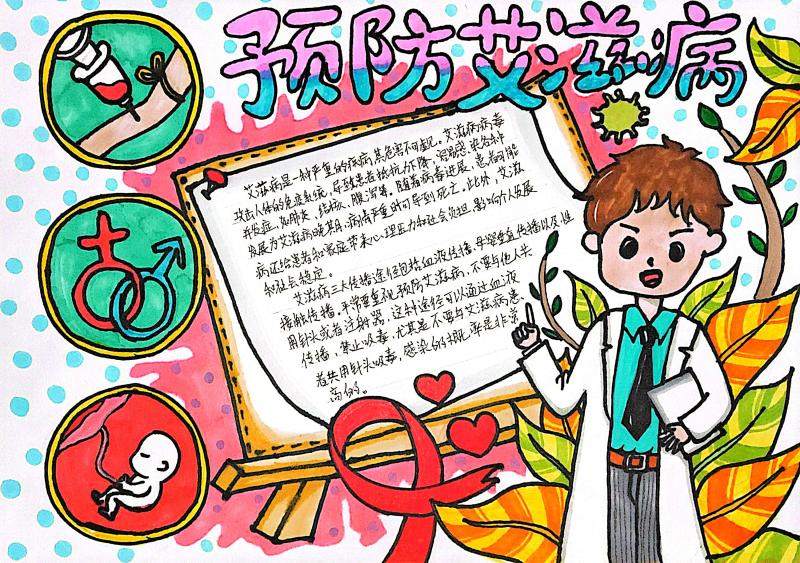 预防艾滋病
艾滋病是一种严重的疾病,其危害不可忽视。艾滋病病毒
攻击人体的免疫系统,导致患者抵抗力下降,容易感染各种
并发症,如肺炎、结核、腹泻等。随着病毒进展,患者可能
发展为艾滋病晚期,病情严重时可导致死亡。此外,艾滋
病还给患者和家庭带来心理压力和社会负担,影响个人发展
和社会稳定。
艾滋病三大传播途径包括血液传播、母婴垂直传播以及性
接触传播,平常要重视预防艾滋病,不要与他人共
用针头或者注射器,这种途径可以通过血液
传播,禁止吸毒,尤其是不要与艾滋病患
者共用针头吸毒,感染的概率是非常
高的。